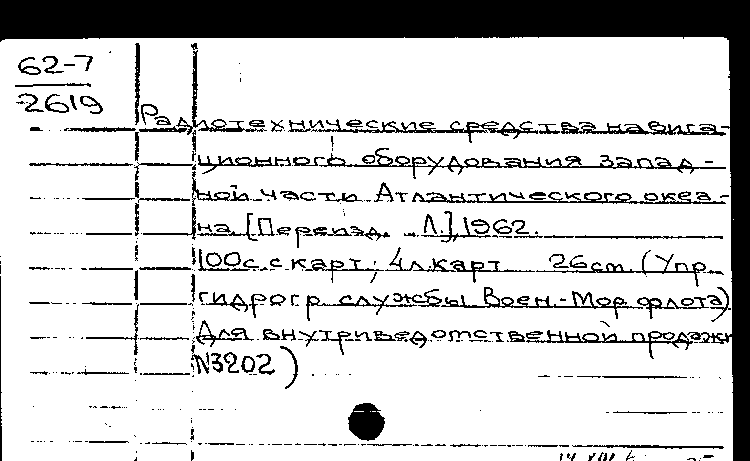 62-7
2619
Радиотехнические средства навига-
ционного оборудования запад-
ной части Атлантического океа-
на [Переизд. Л.], 1962.
100с. с карт; 4л. карт 26cm (Упр.
гидрогр. службы Воен.-Мор. флота)
Для внутриведомственной продажи
N3202)